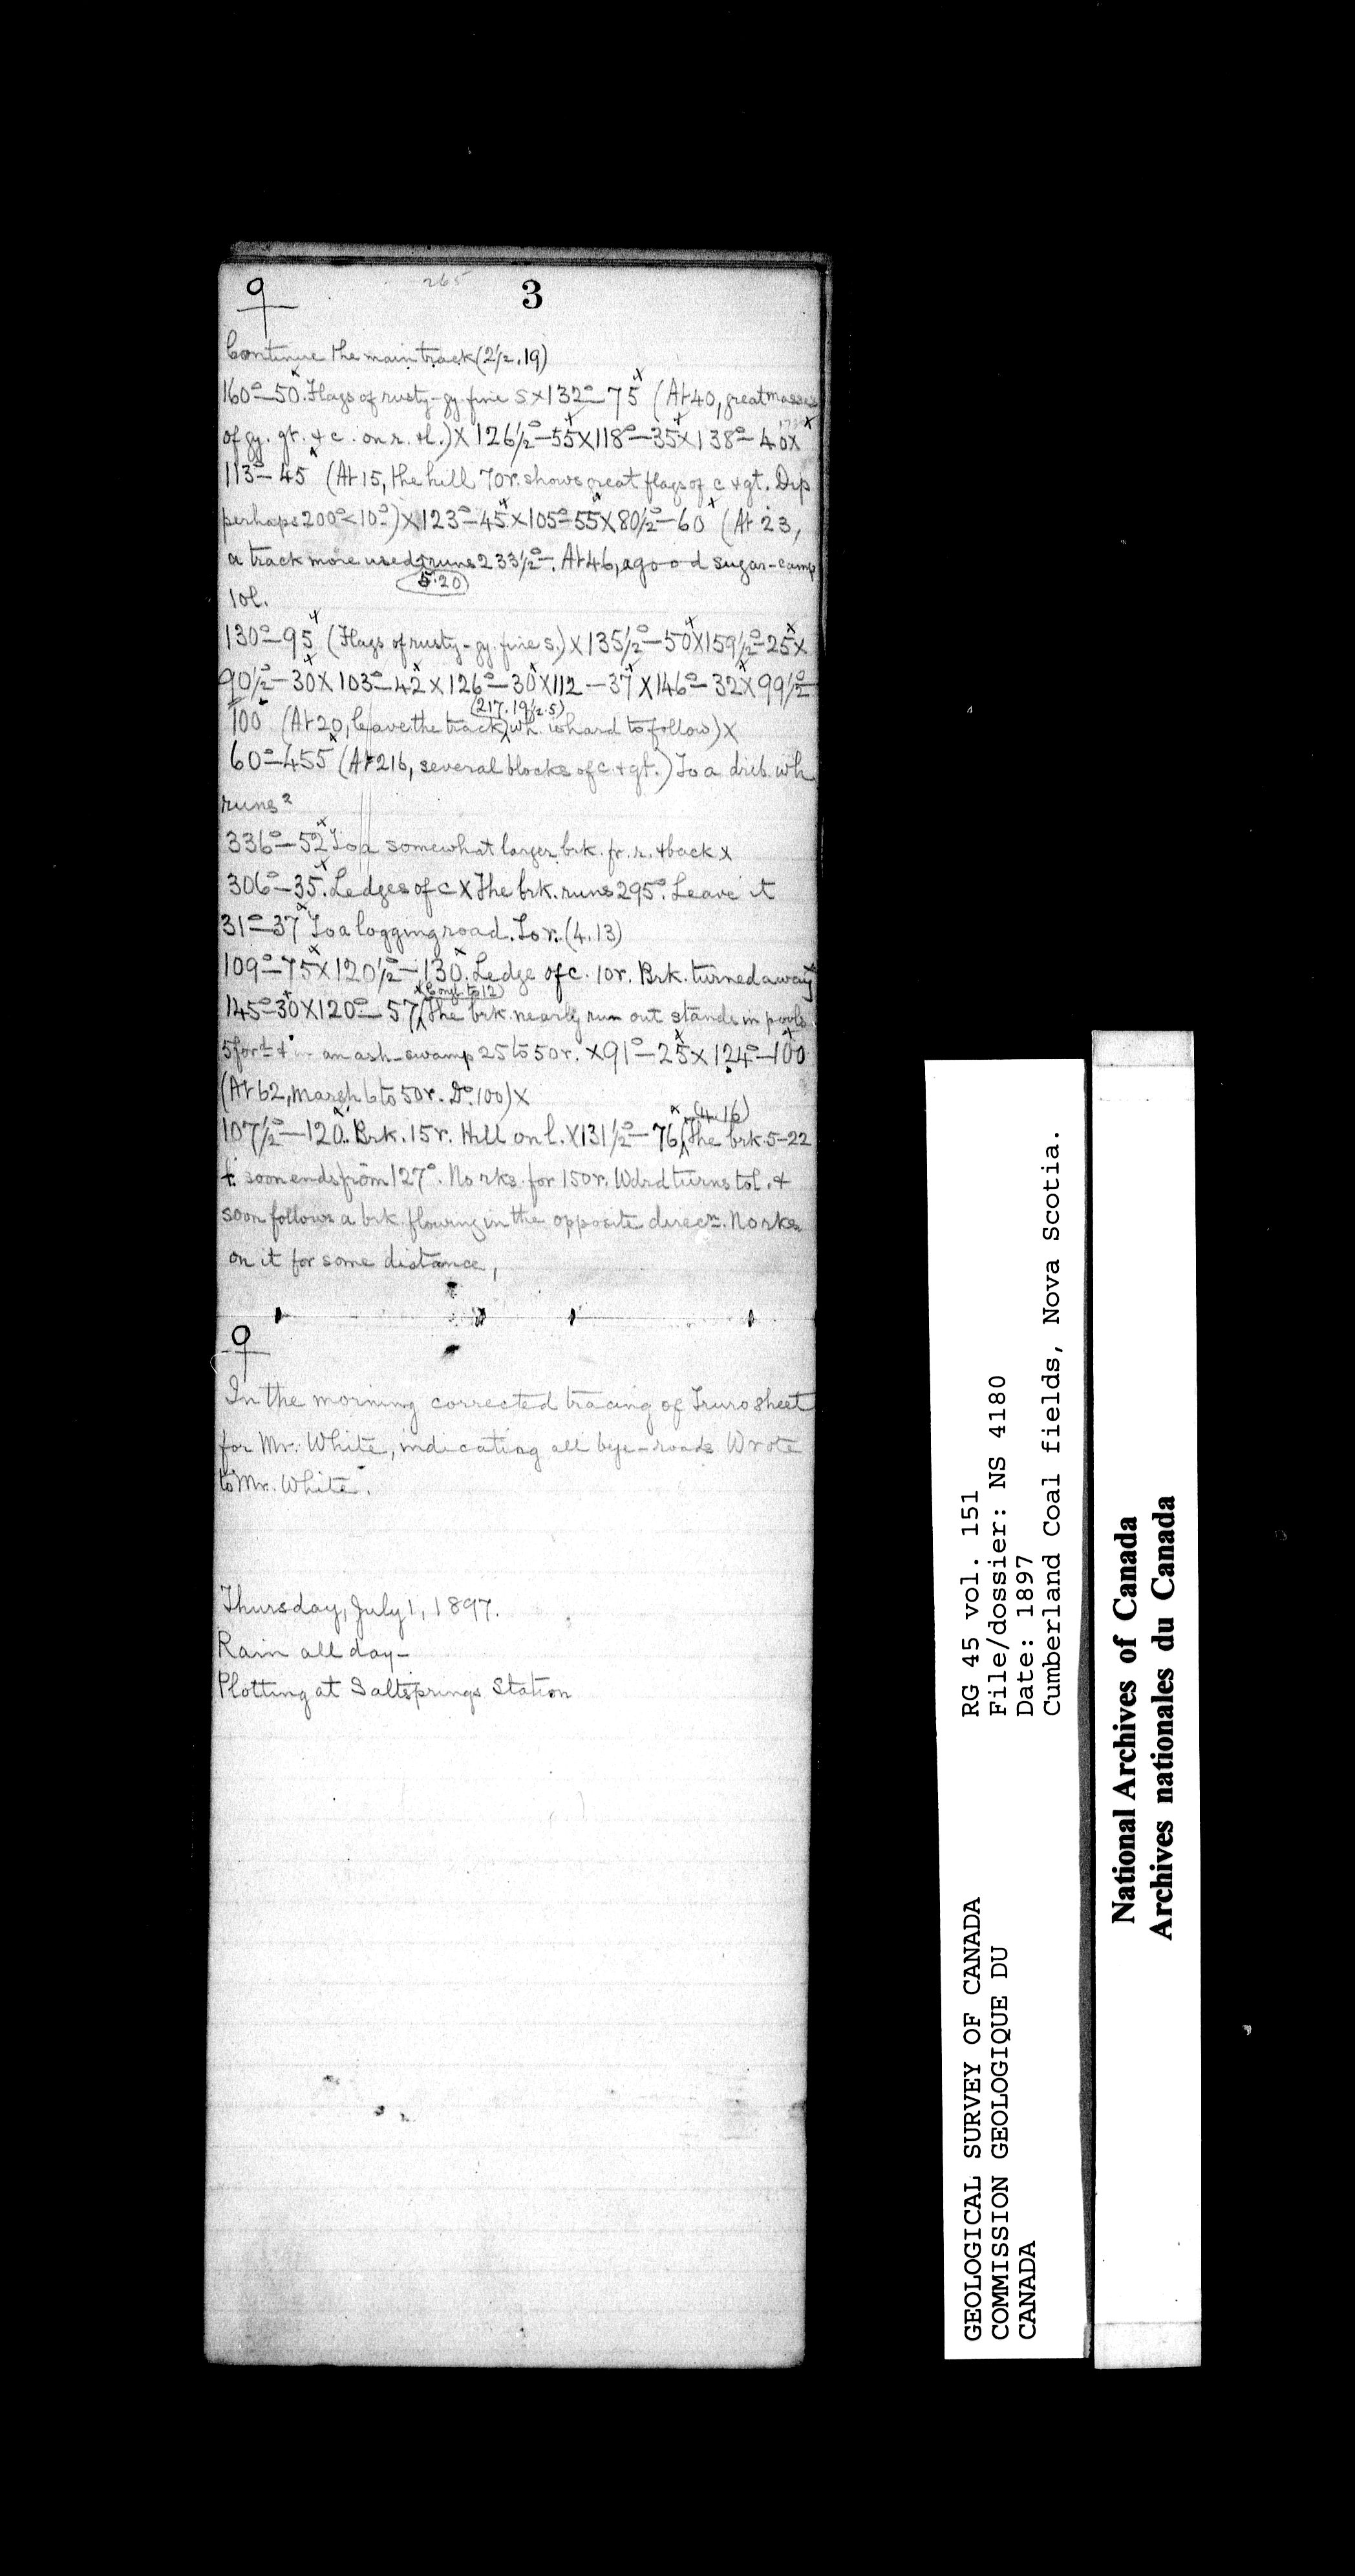 9
265
3
Continue the main track (2½.19)
160°–50. Flags of rusty-gy. fine s x 132°–75 (At 40, great masses
of gy. gt. & c. on r. & l.) X 126½°–55 x 118°–35 x 138°–40 x
113°–45 (At 15, the hill 70r. shows great flags of c & gt. Dip
perhaps 200°<10°) x 123°–45 x 105°–55 x 80½°–60 (At 23,
a track more used runs 233½°. At 46, a good sugar-camp
5.20
10l.
130°–95 (Flags of rusty-gy. fine s.) x 135½°–50 x 159½°–25 x
90½°–30 x 103°–42 x 126°–30 x 112–37 x 146°–32 x 99½°–
(217.19½.5)
100 (At 20, leave the track, wh. is hard to follow) X
60°–455 (At 216, several blocks of c. & gt.) To a drib. wh
runs
336°–52 To a somewhat larger brk. fr. r. & back x
306°–35. Ledges of c X The brk. runs 295°. Leave it
31°–37 To a logging road. To r. (4.13)
109°–75 x 120½°–130. Ledge of c. 10r. Brk. turned away
(Congl. to 12)
145°–30 X 120°–57 (The brk. nearly run out stands in pools
5 for & in an ash-swamp 25 to 50r. x 91°–25 x 124°–100
(At 62, marsh 6 to 50r. Do. 100) X
(4.16)
107½°–120. Brk. 15r. Hill on l. X 131½°–76 (The brk 5–22
& soon ends from 127°. No rks. for 150r. Wdrd turns to l. &
soon follows a brk. flowing in the opposite direcn. No rks
on it for some distance,
9
In the morning corrected tracing of Truro sheet
for Mr. White, indicating all bye-roads Wrote
to Mr. White.
Thursday, July 1, 1897.
Rain all day–
Plotting at Saltsprings Station
GEOLOGICAL SURVEY OF CANADA
COMMISSION GEOLOGIQUE DU
CANADA
RG 45 vol. 151
File/dossier: NS 4180
Date: 1897
Cumberland Coal fields, Nova Scotia.
National Archives of Canada
Archives nationales du Canada